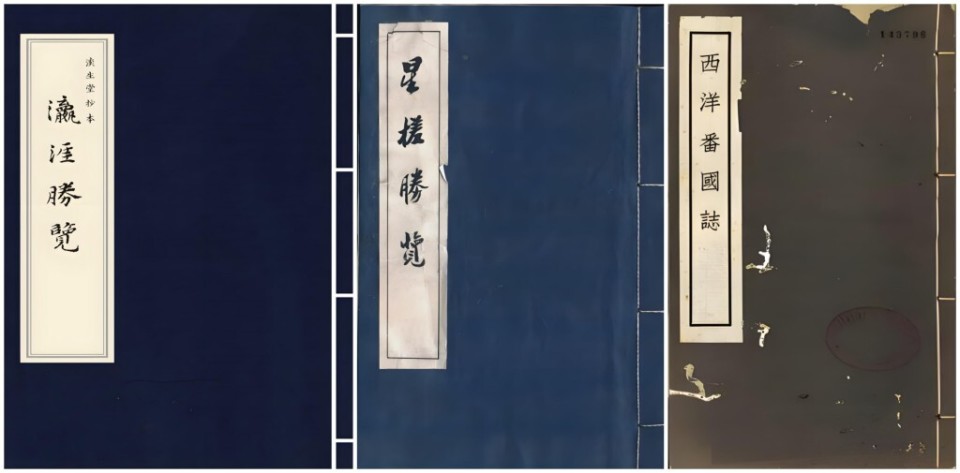 澹生堂抄本
瀛涯勝覽
星槎勝覽
西洋番國誌
149796